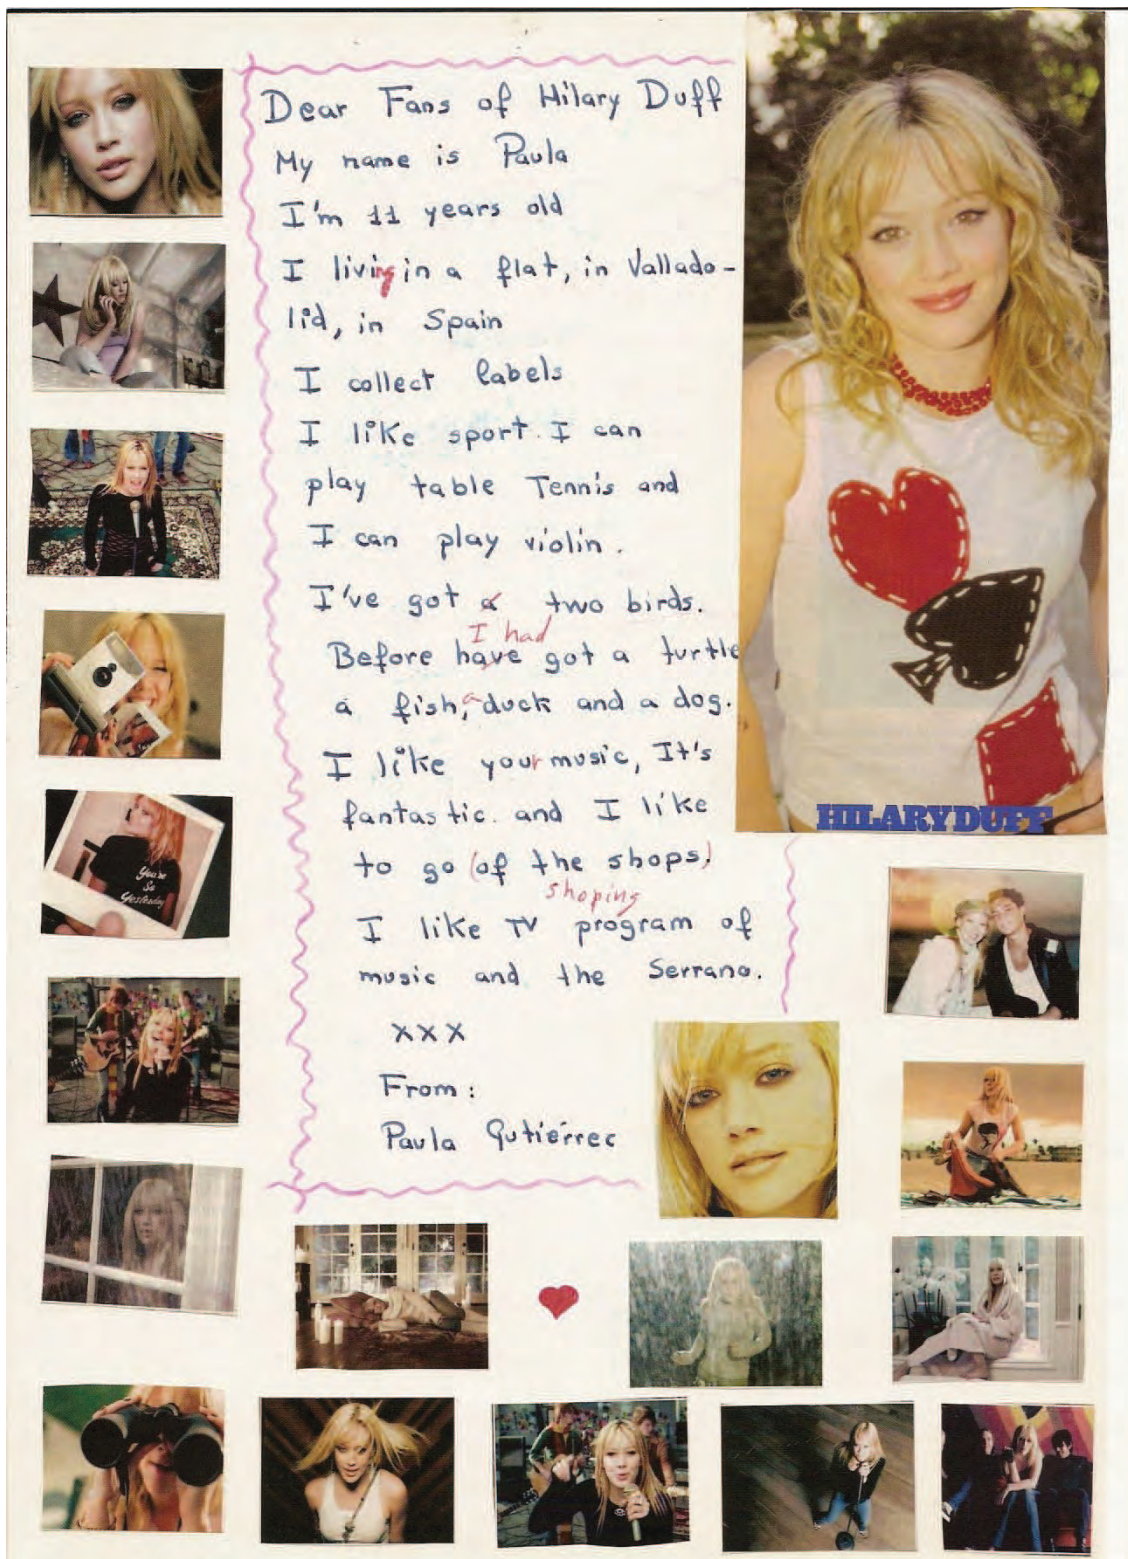 Dear Fans of Hilary Duff
My name is Paula
I'm 11 years old
I living in a flat, in Vallado-
lid, in Spain
I collect labels
I like sport. I can
play table Tennis and
I can play violin.
I've got a two birds.
I had
Before have got a turtle
a fish, a duck and a dog.
I like your music, It's
fantastic. and I like
to go (of the shops)
shoping
I like TV program of
music and the Serrano.
xxx
From:
Paula Gutiérrec
HILARY DUFF
You're
So
Yesterday